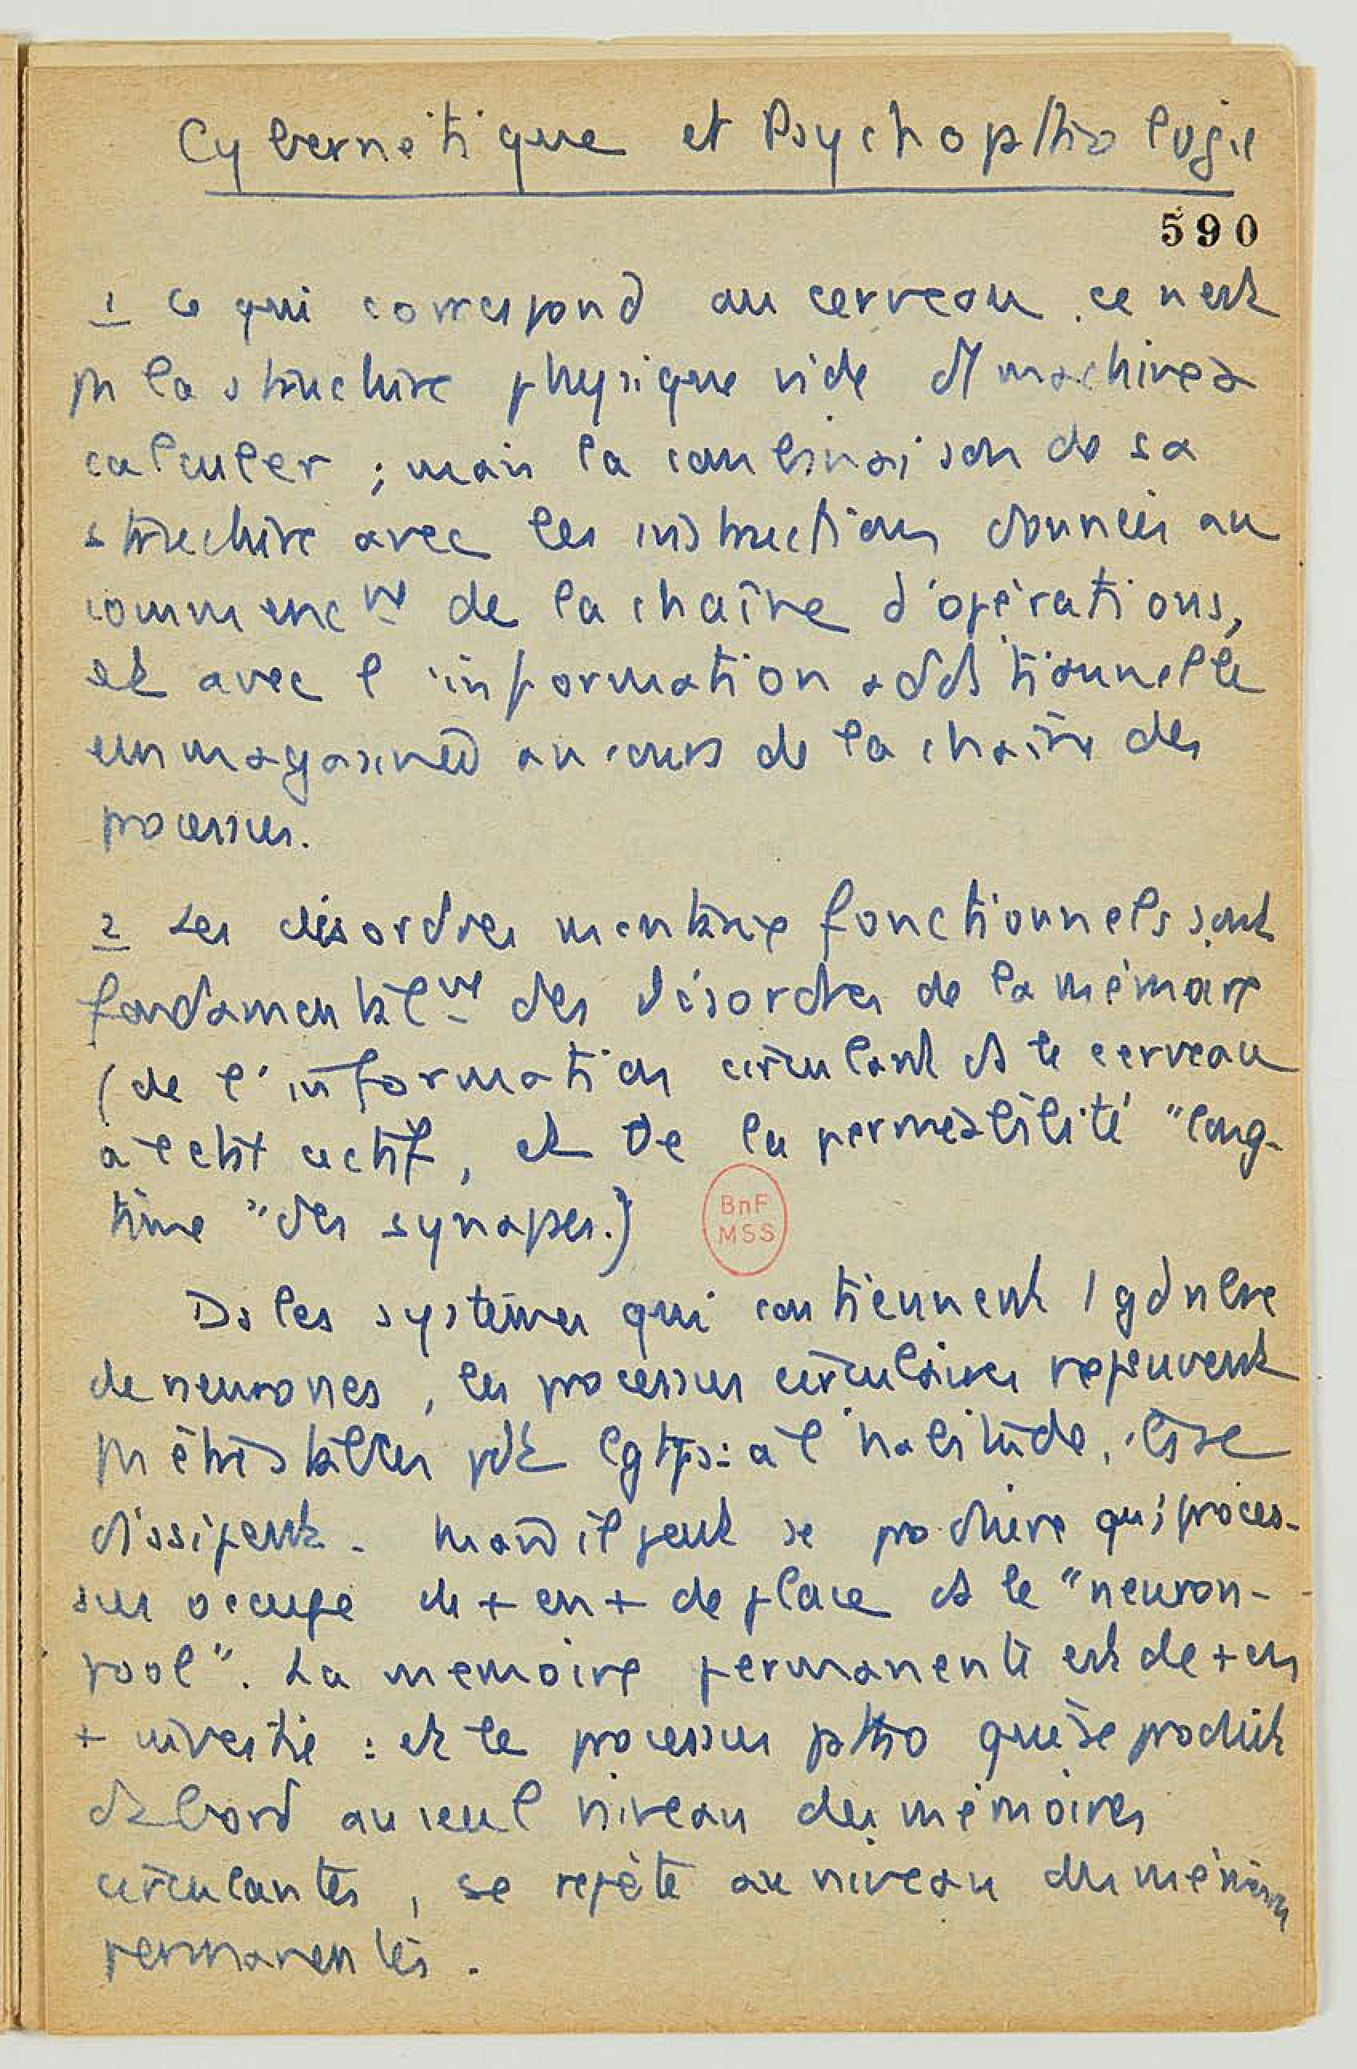 Cybernétique et Psychoptholugie
590
1 Ce qui correspond au cerveau ce n'est
pas la structure physique vide de machine à
calculer ; mais la combinaison de sa
structure avec les instructions données au
commencnt de la chaîne d'opérations,
et avec l'information additionnelle
emmagasinée au cours de la chaîne des
processus.
2 Les désordres mentaux fonctionnels sont
fondamentalnt des désordres de la mémoire
(de l'information circulant ds le cerveau
à l'état actif, et de la perméabilité "long-
time" des synapses.)
BnF
MSS
Ds les systèmes qui contiennent 1 gd nbre
de neurones, les processus circulaires peuvent
pas être stables pdt lgtps : à l'habitude, ils se
dissipent. Mais il peut se produire qu'1 proces-
sus occupe de + en + de place ds le "neuron-
pool". La mémoire permanente est de + en
+ investie : et le processus ptho qui se produit
d'abord au seul niveau des mémoires
circulantes, se répète au niveau des mémoires
permanentes.